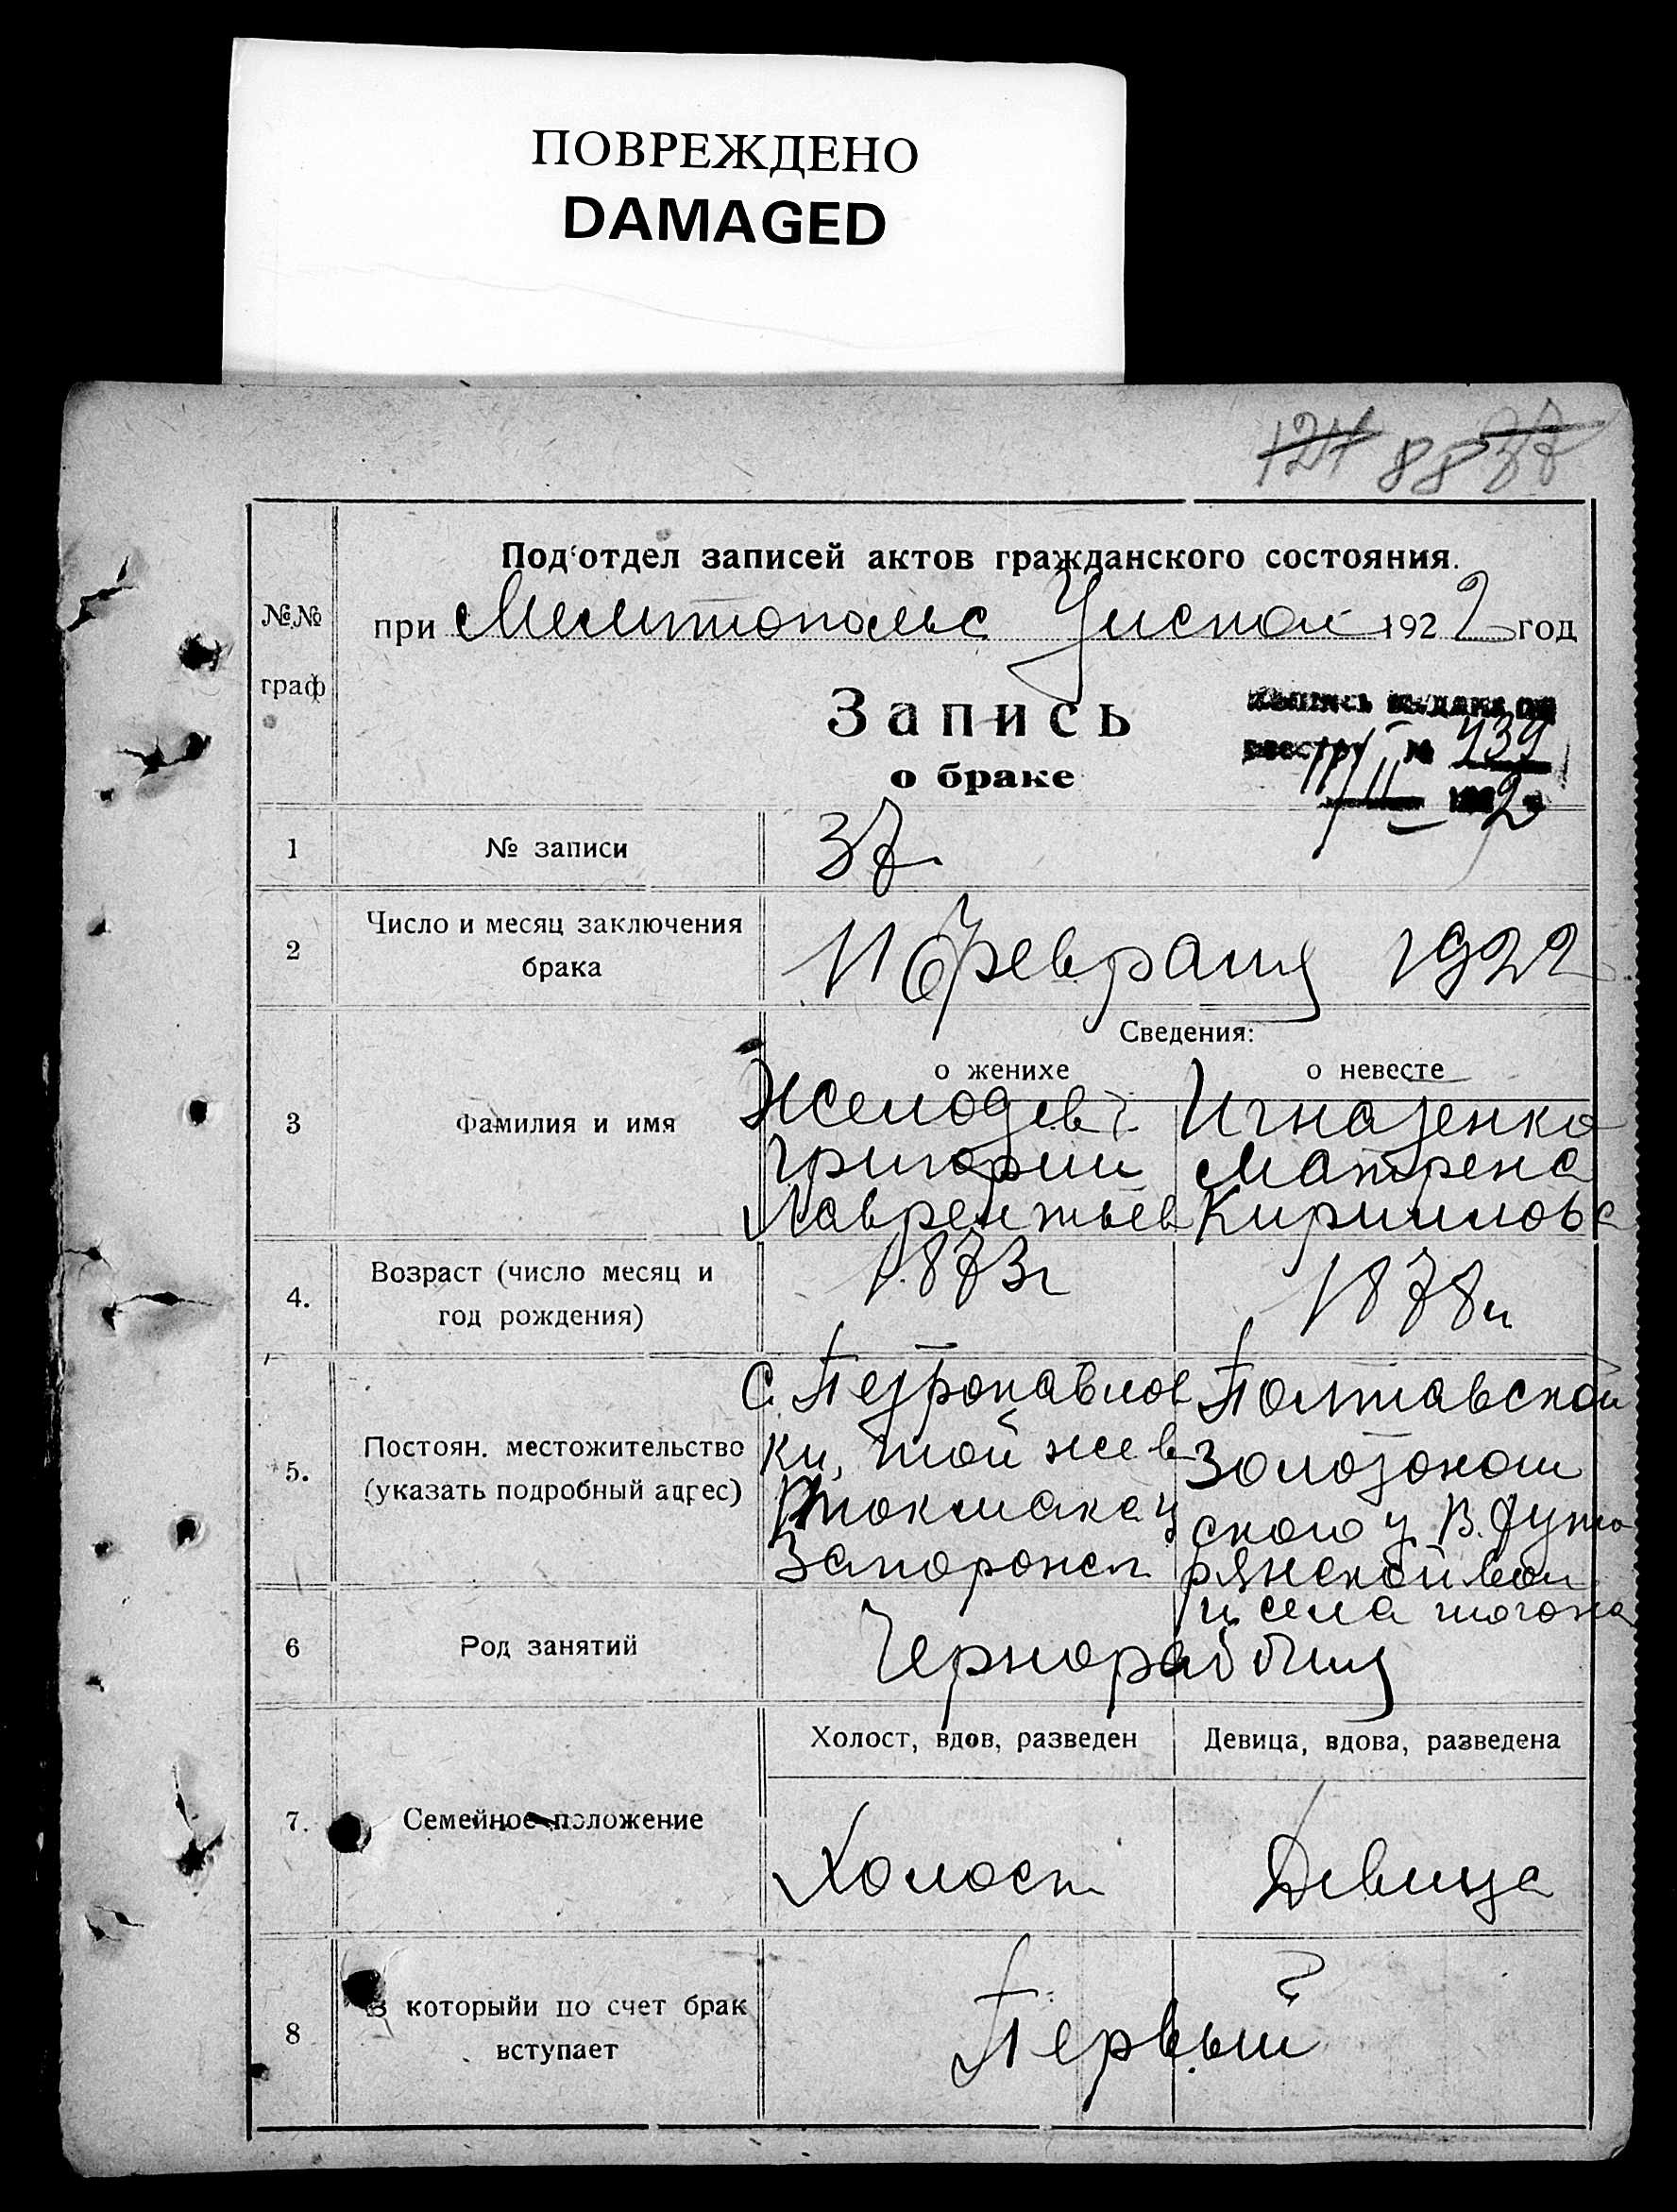 ПОВРЕЖДЕНО
DAMAGED
121 88 37
Под'отдел записей актов гражданского состояния.
№№ граф
при Мелитопольс Уиспол 1922 год
Запись
о браке
Выпись выдана по
реестру № 439
11/II 1922
1 № записи 37
2 Число и месяц заключения брака 11 февраля 1922
Сведения:
о женихе о невесте
3 Фамилия и имя
Игнатенко
Григорий Матрена
Лаврентьев Кириллова
4. Возраст (число месяц и год рождения) 1873г 1878г
5. Постоян. местожительство (указать подробный адрес)
С. Петропавлов Полтавской
ки, той же в Золотонош
Токмака у ского у
Запорожск рянской вол
и села того же
6 Род занятий Чернорабочия
Холост, вдов, разведен Девица, вдова, разведена
7. Семейное положение Холост Девица
8 В которыйи по счет брак вступает Первый